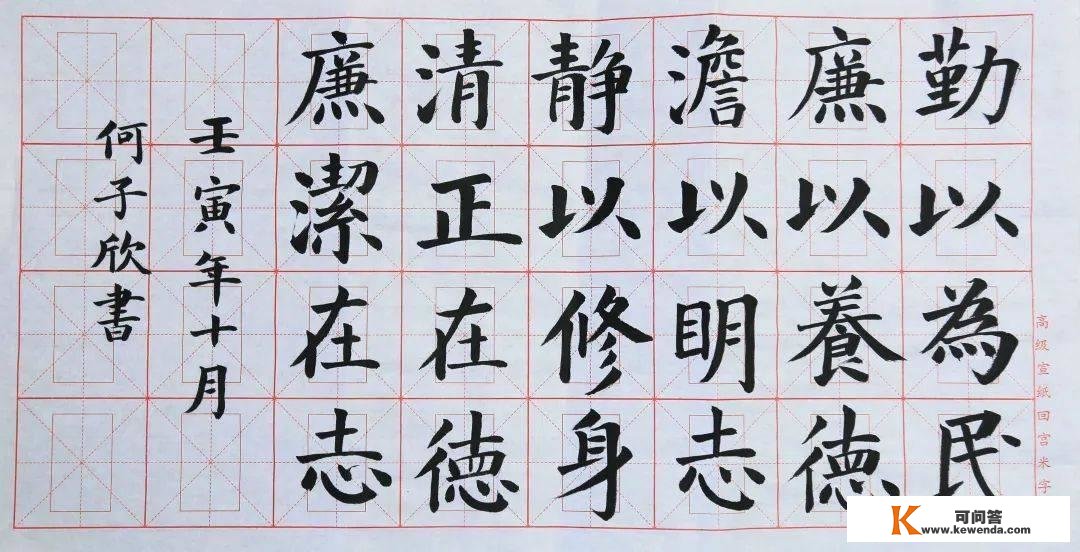 勤以為民
廉以養德
澹以眀志
静以修身
清正在德
廉潔在志
壬寅年十月
何子欣書
高级宣纸回宫米字
K 可问答
www.kewenda.com